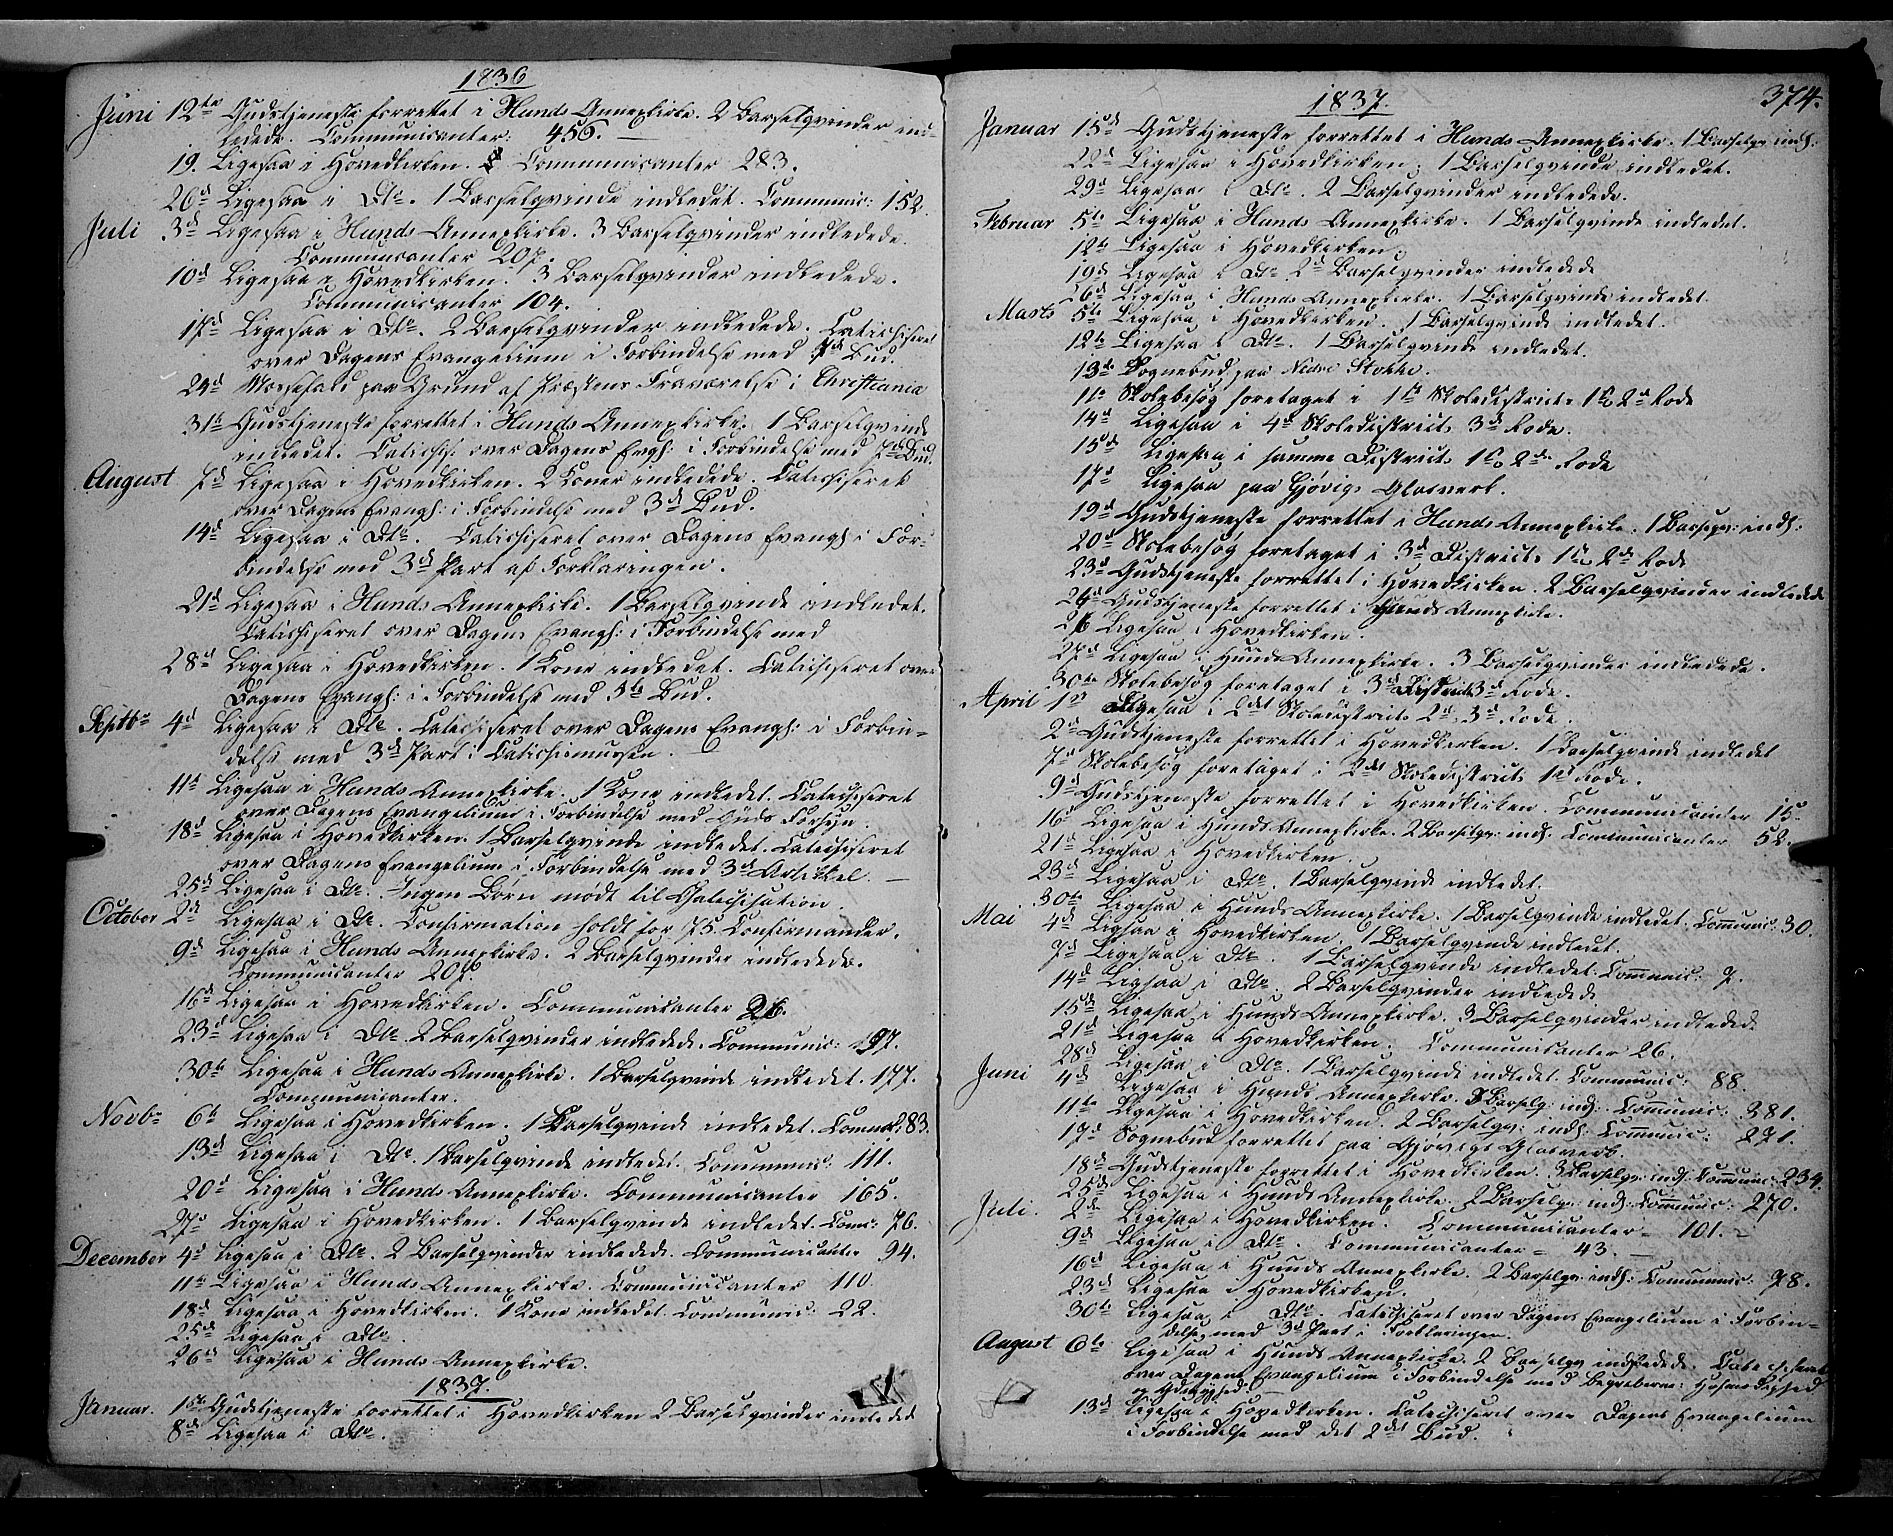 1836
Juni 12te Gudstjeneste forrettet i Hunds Annexkirke. 2 Barselqvinder ind-
ledede. Communicanter: 456. —
19. Ligesaa i Hovedkirken. Communicanter 283.
26d Ligesaa i Dto. 1 Barselqvinde indledet. Communic: 152.
Juli 3d Ligesaa i Hunds Annexkirke. 3 Barselqvinder indledede.
Communicanter 207.
10d Ligesaa i Hovedkirken. 3 Barselqvinder indledede.
Communicanter 104.
17d Ligesaa i Dto. 2 Barselqvinder indledede. Catechiseret
over Dagens Evangelium i Forbindelse med Bud.
24d Messefald paa Grund af Præstens Fraværelse i Christiania
31te Gudstjeneste forrettet i Hunds Annexkirke. 1 Barselqvinde
indledet. Catechis: over Dagens Evgh: i Forbindelse med Bud.
August 7d Ligesaa i Hovedkirken. 2 Koner indledede. Catechiseret
over Dagens Evangh: i Forbindelse med 3d Bud.
14d Ligesaa i Dto. Catechiseret over Dagens Evangh: i For-
bindelse med 3d Part af Forklaringen.
21d Ligesaa i Hunds Annexkirke. 1 Barselqvinde indledet.
Catechiseret over Dagens Evangh: i Forbindelse med
28d Ligesaa i Hovedkirken. 1 Kone indledet. Catechiseret over
Dagens Evangh: i Forbindelse med 5te Bud.
Septbr 4d Ligesaa i Dto. Catechiseret over Dagens Evangh: i Forbin-
delse med 3d Part i Catechismussen.
11te Ligesaa i Hunds Annexkirke. 1 Kone indledet. Catechiseret
over Dagens Evangelium i Forbindelse med Guds Forsyn.
18d Ligesaa i Hovedkirken. 1 Barselqvinde indledet. Catechiseret
over Dagens Evangelium i Forbindelse med 3d Artikkel. —
25d Ligesaa i Dto. Ingen Børn mødt til Catechisation.
October 2d Ligesaa i Dto. Confirmation holdt for 75 Confirmander.
9d Ligesaa i Hunds Annexkirke. 2 Barselqvinder indledede.
Communicanter 207.
16d Ligesaa i Hovedkirken. Communicanter 26.
23d Ligesaa i Dto. 2 Barselqvinder indledede. Communic: 197.
30te Ligesaa i Hunds Annexkirke. 1 Barselqvinde indledet. 177.
Communicanter.
Novbr 6te Ligesaa i Hovedkirken. 1 Barselqvinde indledet. 83.
13d Ligesaa i Dto. 1 Barselqvinde indledet. Communic: 111.
20d Ligesaa i Hunds Annexkirke. Communicanter 165.
27d Ligesaa i Hovedkirken. 1 Barselqvinde indledet. Comm: 76.
December 4d Ligesaa i Dto. 2 Barselqvinder indledede. Communicanter 94.
11te Ligesaa i Hunds Annexkirke. Communicanter 110.
18d Ligesaa i Hovedkirken. 1 Kone indledet. Communic: 22.
25d Ligesaa i Dto.
26d Ligesaa i Hunds Annexkirke.
1837.
Januar. 1ste Gudstjeneste forrettet i Hovedkirken 2 Barselqvinder indledede
8de Ligesaa i Dto.
374.
1837.
Januar 15d Gudstjeneste forrettet i Hunds Annexkirke. 1 Barselqv: indl:
22d Ligesaa i Hovedkirken. 1 Barselqvinde indledet.
29d Ligesaa i Dto. 2 Barselqvinder indledede.
Februar 5te Ligesaa i Hunds Annexkirke. 1 Barselqvinde indledet.
12te Ligesaa i Hovedkirken.
19d Ligesaa i Dto. 2 Barselqvinder indledede
26d Ligesaa i Hunds Annexkirke. 1 Barselqvinde indledet.
Marts 5te Ligesaa i Hovedkirken. 1 Barselqvinde indledet.
12te Ligesaa i Dto. 1 Barselqvinde indledet.
13de Sognebud paa Nedre Stokke.
11te Skolebesøg foretaget i 1ste Skoledistricts 1ste 2d Rode
14d Ligesaa i 4d Skoledistricts 3d Rode.
15d Ligesaa i samme Districts 1ste 2de Rode
17d Ligesaa paa Gjøvigs Glasverk.
19d Gudstjeneste forrettet i Hunds Annexkirke. 1 Barselqv: indl:
20d Skolebesøg foretaget i 3d Districts 1ste 2de Rode
23d Gudstjeneste forrettet i Hovedkirken. 2 Barselqvinder indledede
24d Gudstjeneste forrettet i Hunds Annexkirke.
26 Ligesaa i Hovedkirken.
27d Ligesaa i Hunds Annexkirke. 3 Barselqvinder indledede.
30te Skolebesøg foretaget i 3d Districts 3d Rode.
April 1ste Ligesaa i 2det Skoledistricts 2d, 3d Rode.
2d Gudstjeneste forrettet i Hovedkirken. 1 Barselqvinde indledet
7d Skolebesøg foretaget i 2det Skoledistricts 1ste Rode.
9d Gudstjeneste forrettet i Hovedkirken Communicanter 15.
16d Ligesaa i Hunds Annexkirke. 2 Barselqv: indl: Communicanter 52.
21d Ligesaa i Hovedkirken.
23d Ligesaa i Dto. 1 Barselqvinde indledet.
30te Ligesaa i Hunds Annexkirke. 1 Barselqvinde indledet. Communic: 30.
Mai 4d Ligesaa i Hovedkirken 1 Barselqvinde indledet.
7d Ligesaa i Dto. 1 Barselqvinde indledet. Communic: 7.
14d Ligesaa i Dto. 2 Barselqvinder indledede
15de Ligesaa i Hunds Annexkirke. 3 Barselqvinder indledede
21d Ligesaa i Hovedkirken. Communicanter 26.
28d Ligesaa i Dto. 1 Barselqvinde indledet. Communic: 88.
Juni 4d Ligesaa i Hunds Annexkirke. 3 Barselqv: indl: Communic: 381.
11te Ligesaa i Hovedkirken. 2 Barselqv: indl: Communic: 271.
17d Sognebud forrettet paa Gjøvigs Glasverk.
18d Gudstjeneste forrettet i Hovedkirken. 3 Barselqv: indl: Communic: 234.
25d Ligesaa i Hunds Annexkirke. 2 Barselqv: indl: Communic: 270.
Juli. 2de Ligesaa i Hovedkirken. Communicanter — 101. —
9d Ligesaa i Dto. Communicanter — 43. —
16d Ligesaa i Hunds Annexkirke. 2 Barselqv: indl: Communic: 78.
23d Ligesaa i Hovedkirken.
30te Ligesaa i Dto. Catechiseret over Dagens Evangelium i Forbin-
delse med 3d Part i Forklaringen.
August 6te Ligesaa i Hunds Annexkirke. 2 Barselqv indledede. Catechiseret
over Dagens Evangelium i Forbindelse med Begreberne:
13d Ligesaa i Hovedkirken. Catechiseret over Dagens Evangelium
i Forbindelse med det 2det Bud.